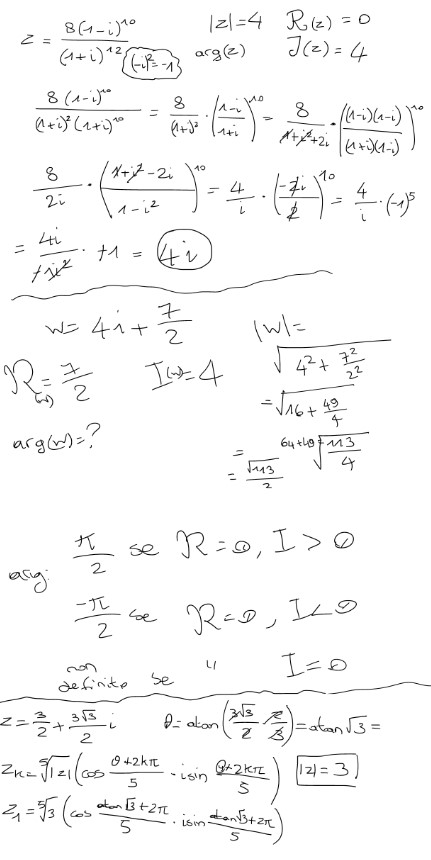 z = 8(1-i)^10 / (1+i)^12   |z|=4   R(z) = 0
(-i)²=-1   arg(z)   I(z) = 4
8(1-i)^10 / (1+i)²(1+i)^10 = 8/(1+i)² · ((1-i)/(1+i))^10 = 8/(1+i²+2i) · ((1-i)(1-i)/(1+i)(1-i))^10
8/2i · ((1+i²-2i)/(1-i²))^10 = 4/i · (-2i/2)^10 = 4/i · (-1)^5
= 4i/+i² · +1 = 4i
w = 4i + 7/2   |w| =
√(4² + 7²/2²)
R(w) = 7/2   I(w) = 4
= √(16 + 49/4)
arg(w) = ?
= 64+49 √(113/4)
= √113/2
arg:
π/2 se R=0, I > 0
-π/2 se R=0, I < 0
non definito se " I = 0
z = 3/2 + 3√3/2 i   θ = atan(3√3/2 · 2/3) = atan √3 =
z_k = ⁵√|z| (cos (θ+2kπ)/5 · i sin (θ+2kπ)/5)   |z| = 3
z_1 = ⁵√3 (cos (atan√3+2π)/5 · i sin (atan√3+2π)/5)